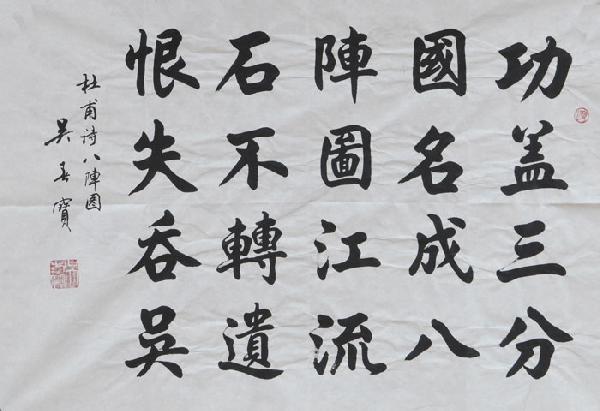 功盖三分
國名成八
陣圖江流
石不轉遺
恨失吞吳
杜甫诗八陣圖
吴春寶